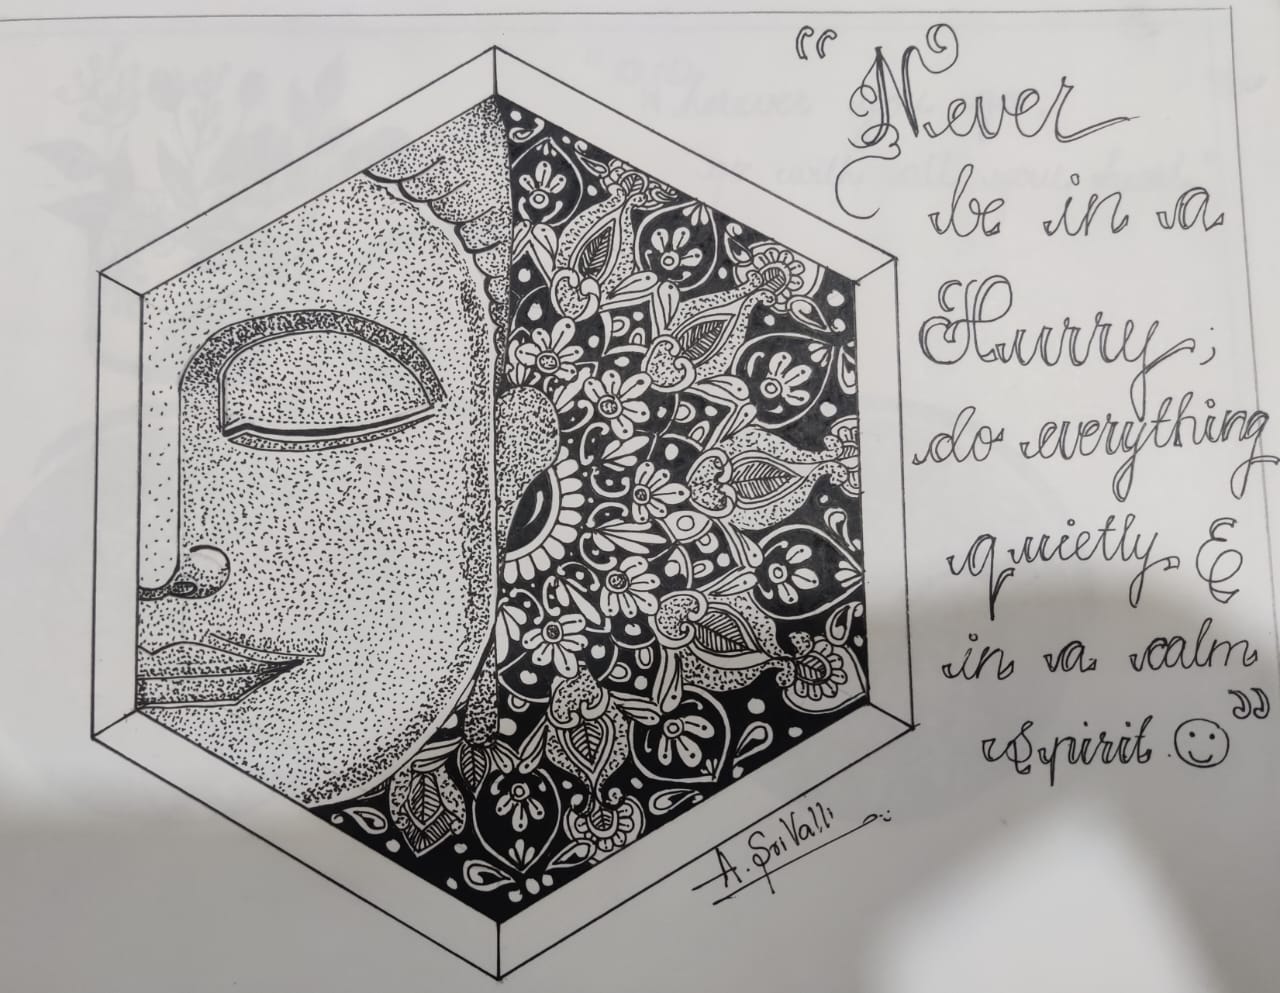 “ Never
be in a
Hurry;
do everything
quietly &
in a calm
spirit. ☺ ”
A. Sri Valli